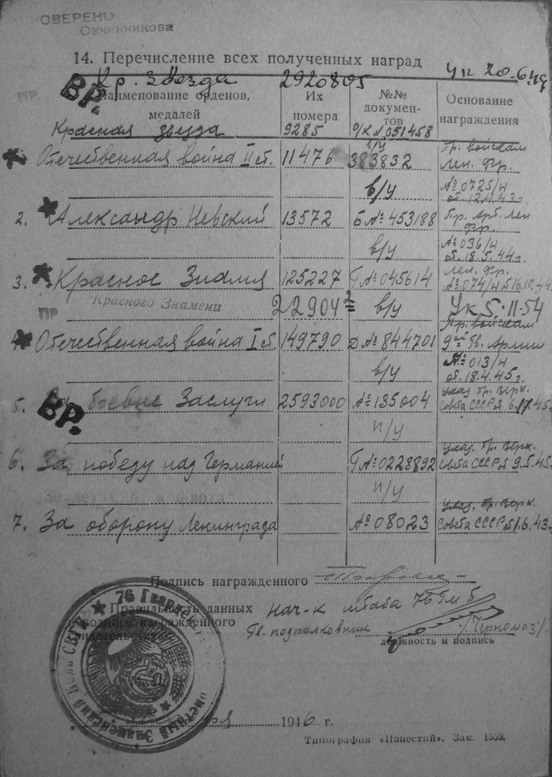 ОВЕРЕНО
Овчинникова
14. Перечисление всех полученных наград
Кр. Звезда 2920805 Ук 20.6.49
ПР. ВР.
Наименование орденов, медалей | Их номера | №№ документов | Основание награждения
Красная звезда 9285 О/К №051458
в/у
Отечественная война II ст. 11476 383832 Пр. войскам Лен. Фр.
в/у №0725/н
2. Александр Невский 13572 Б №453188 Пр. арт. Лен. Фр.
в/у №036/н от. 18.5.44г.
3. Красное Знамя 125227 Г №045614 Лен. Фр. №074/н
ПР Красного Знамени 22904 в/у Ук 5.11-54
4. Отечественная война I ст. 149790 Д №844701 Пр. войскам 9ой Гв. Армии
в/у №013/н от. 18.4.45г.
5. За боевые Заслуги 2593000 А №135004 указ Пр. Верх. Совета СССР
ВР. п/у
6. За победу над Германией Г №0228892 указ. Пр. Верх. Совета СССР 9.5.45.
п/у
7. За оборону Ленинграда А №08023 указ. Пр. Верх. Совета СССР
Подпись награжденного
Правильность данных
о награжденного
Нач-к штаба
Гв. подполковник /Черномаз/
должность и подпись
76 Гвардей
Знаменский
1946 г.
Типография «Известий». Зак. 1559.